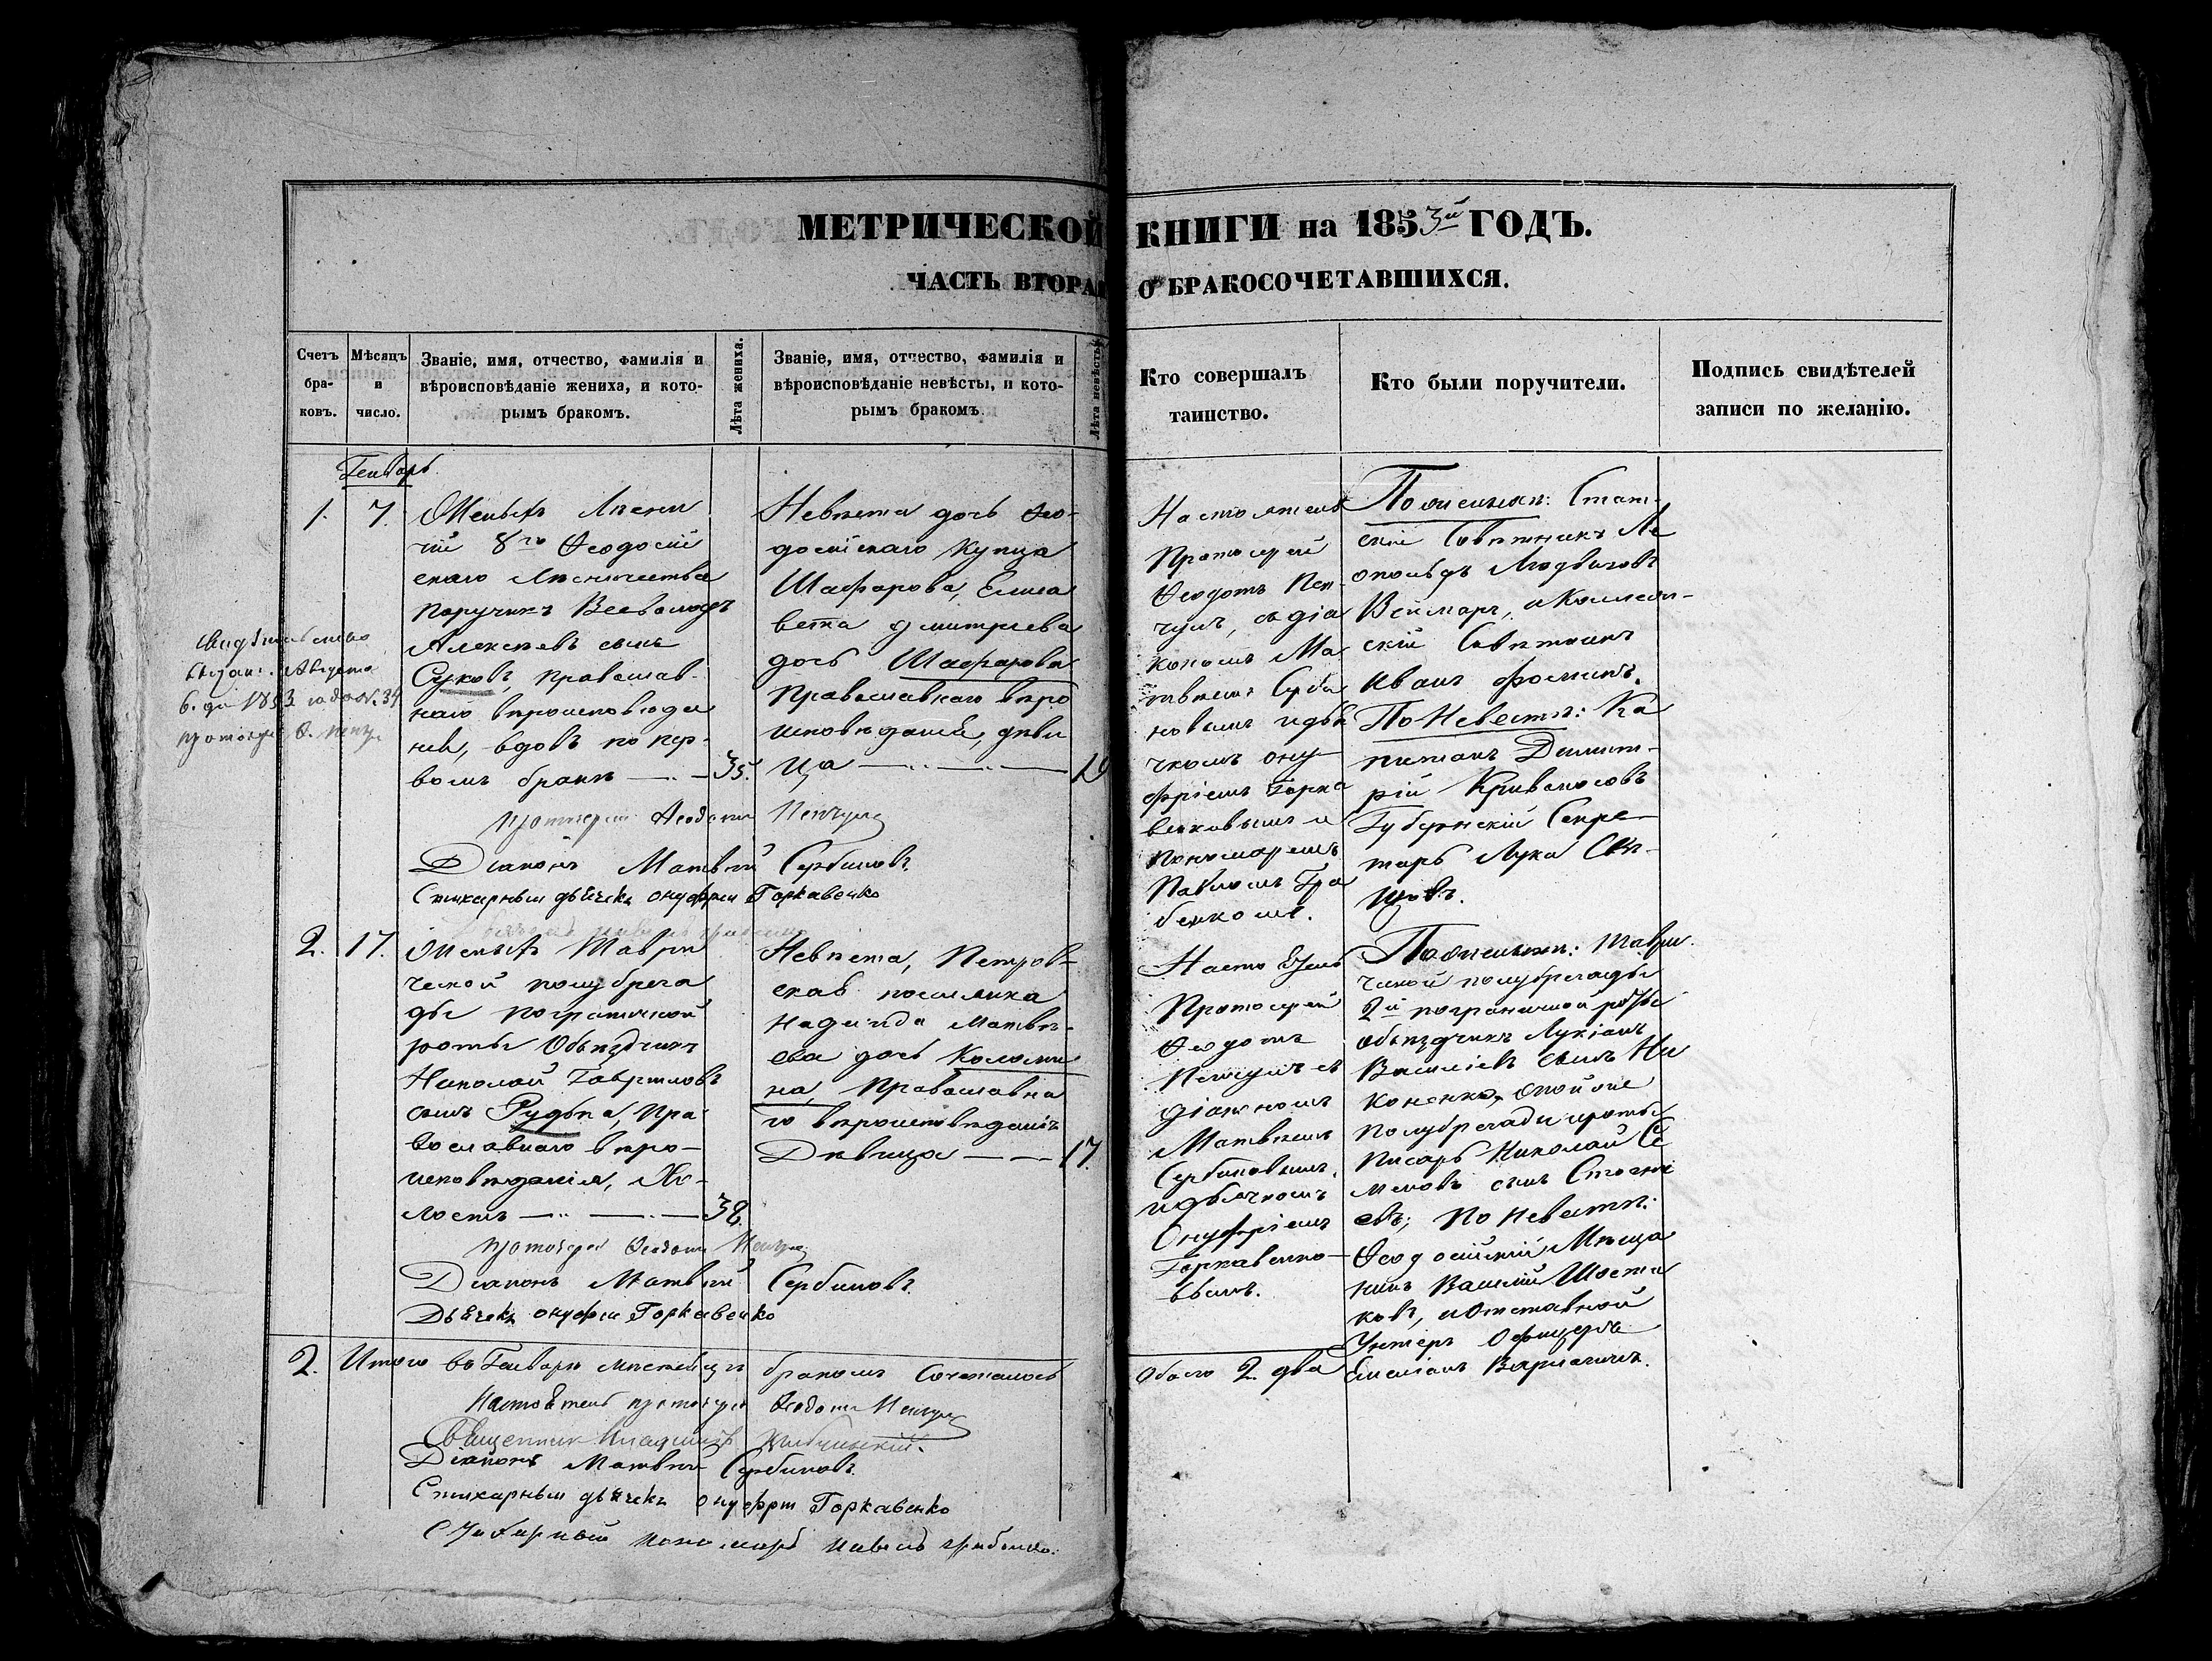 МЕТРИЧЕСКОЙ КНИГИ на 1853й ГОДЪ.
ЧАСТЬ ВТОРАЯ О БРАКОСОЧЕТАВШИХСЯ.
Счетъ бра-ковъ.
Мѣсяцъ и число.
Званіе, имя, отчество, фамилія и
вѣроисповѣданіе жениха, и кото-
рымъ бракомъ.
Лѣта жениха.
Званіе, имя, отчество, фамилія и
вѣроисповѣданіе невѣсты, и кото-
рымъ бракомъ.
Лѣта невѣсты
Кто совершалъ
таинство.
Кто были поручители.
Подпись свидѣтелей
записи по желанію.
Генварь
1. 7.
Женихъ Лѣсни
чій 8го Ѳеодосій
скаго Лѣсничества
Поручикъ Всеволодъ
Алексѣевъ сынъ
Суковъ, православ-
наго вѣроисповѣда
нія, вдовъ по пер-
вомъ бракѣ 35.
Невѣста дочь Ѳео-
досійскаго Купца
Шафарова, Елиса
вета Димитріева
дочь Шафарова
Православнаго вѣро
исповѣданія, дѣви
ца
Настоятель
Протоіерей
Ѳеодотъ Пен-
чулъ, съ діа
кономъ Ма
твѣемъ Серби
новымъ и дья
чкомъ Ону-
фріемъ Горка
венковымъ и
Пономаремъ
Павломъ Гра
бенкомъ.
По женихѣ: Стат-
скій Совѣтникъ Ле
опольдъ Людвиговъ
Веймаръ, и Коллеж-
скій Совѣтникъ
Иванъ Фоминъ.
По Невестѣ: Ка
питанъ Димит-
рій Кривоносовъ
Губернскій Секре-
тарь Лука
Свидѣтельство
выдано Августа
6. дня 1853 года № 34
протоіерей Ѳ. Пенчулъ
Протоіерей Ѳеодотъ Пенчулъ
Діаконъ Матвѣй Сербиновъ.
Стихарный дьячекъ Онуфрій Горкавенко
2. 17.
Женихъ Таври
ческой полубрига
ды пограничной
роты Объѣздчикъ
Николай Гавриловъ
сынъ Рудька, Пра-
вославнаго вѣро-
исповѣданія, Хо-
лостъ 38.
Невѣста, Петров-
ская поселянка
Надежда Матвѣ-
ева дочь Коломи
на, Православна
го вѣроисповѣданія
Дѣвица 17.
Настоятель
Протоіерей
Ѳеодотъ
Пенчулъ съ
діакономъ
Матвѣемъ
Сербиновымъ,
и дьячкомъ
Онуфріемъ
Горкавенко-
вымъ.
По женихѣ: Таври
ческой полубригады
2й пограничной роты
объѣздчикъ Лукіанъ
Василіевъ сынъ Ни
коненко, той же
полубригады и роты
писарь Николай Се
меновъ сынъ
евъ; По Невестѣ:
Ѳеодосійскій Мѣща
нинъ Василій Шоста
ковъ, и Отставной
Унтеръ Офицеръ
Емеліанъ
Протоіерей Ѳеодотъ Пенчулъ
Діаконъ Матвѣй Сербиновъ.
Дьячекъ Онуфрій Горкавенко
2. Итого въ Генварѣ мѣсяцѣ бракомъ Сочеталось
Обоего 2. два
Настоятель протоіерей Ѳеодотъ Пенчулъ
Священник Владиміръ
Діаконъ Матвѣй Сербиновъ.
Стихарный дьячекъ Онуфрій Горкавенко
Стихарный пономарь Павелъ Грабенко.